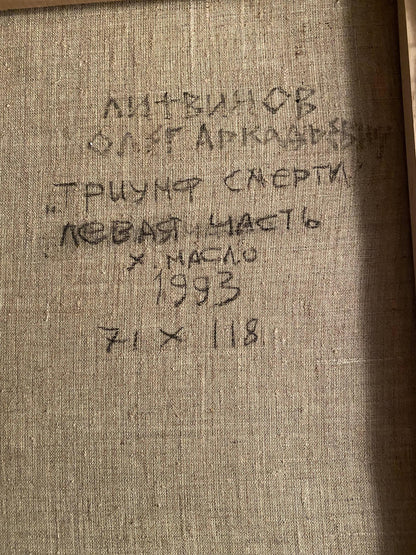 ЛИТВИНОВ
ОЛЕГ АРКАДЬЕВИЧ
"ТРИУМФ СМЕРТИ"
ЛЕВАЯ ЧАСТЬ
Х. МАСЛО
1993
71 х 118